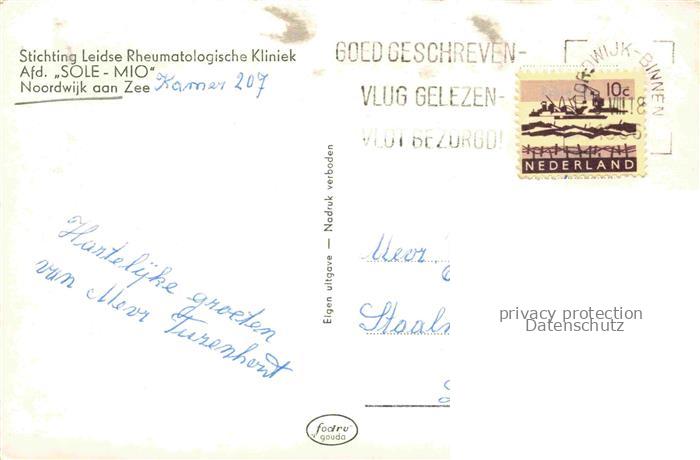 Stichting Leidse Rheumatologische Kliniek
Afd. „SOLE - MIO"
Noordwijk aan Zee Kamer 207
Hartelijke groeten
van Mevr Turenhout
Eigen uitgave — Nadruk verboden
fodru
gouda
GOED GESCHREVEN-
VLUG GELEZEN-
VLOT BEZORGD!
WIJK-BINNEN
VIII 18
10c
NEDERLAND
Mevr.
privacy protection
Datenschutz